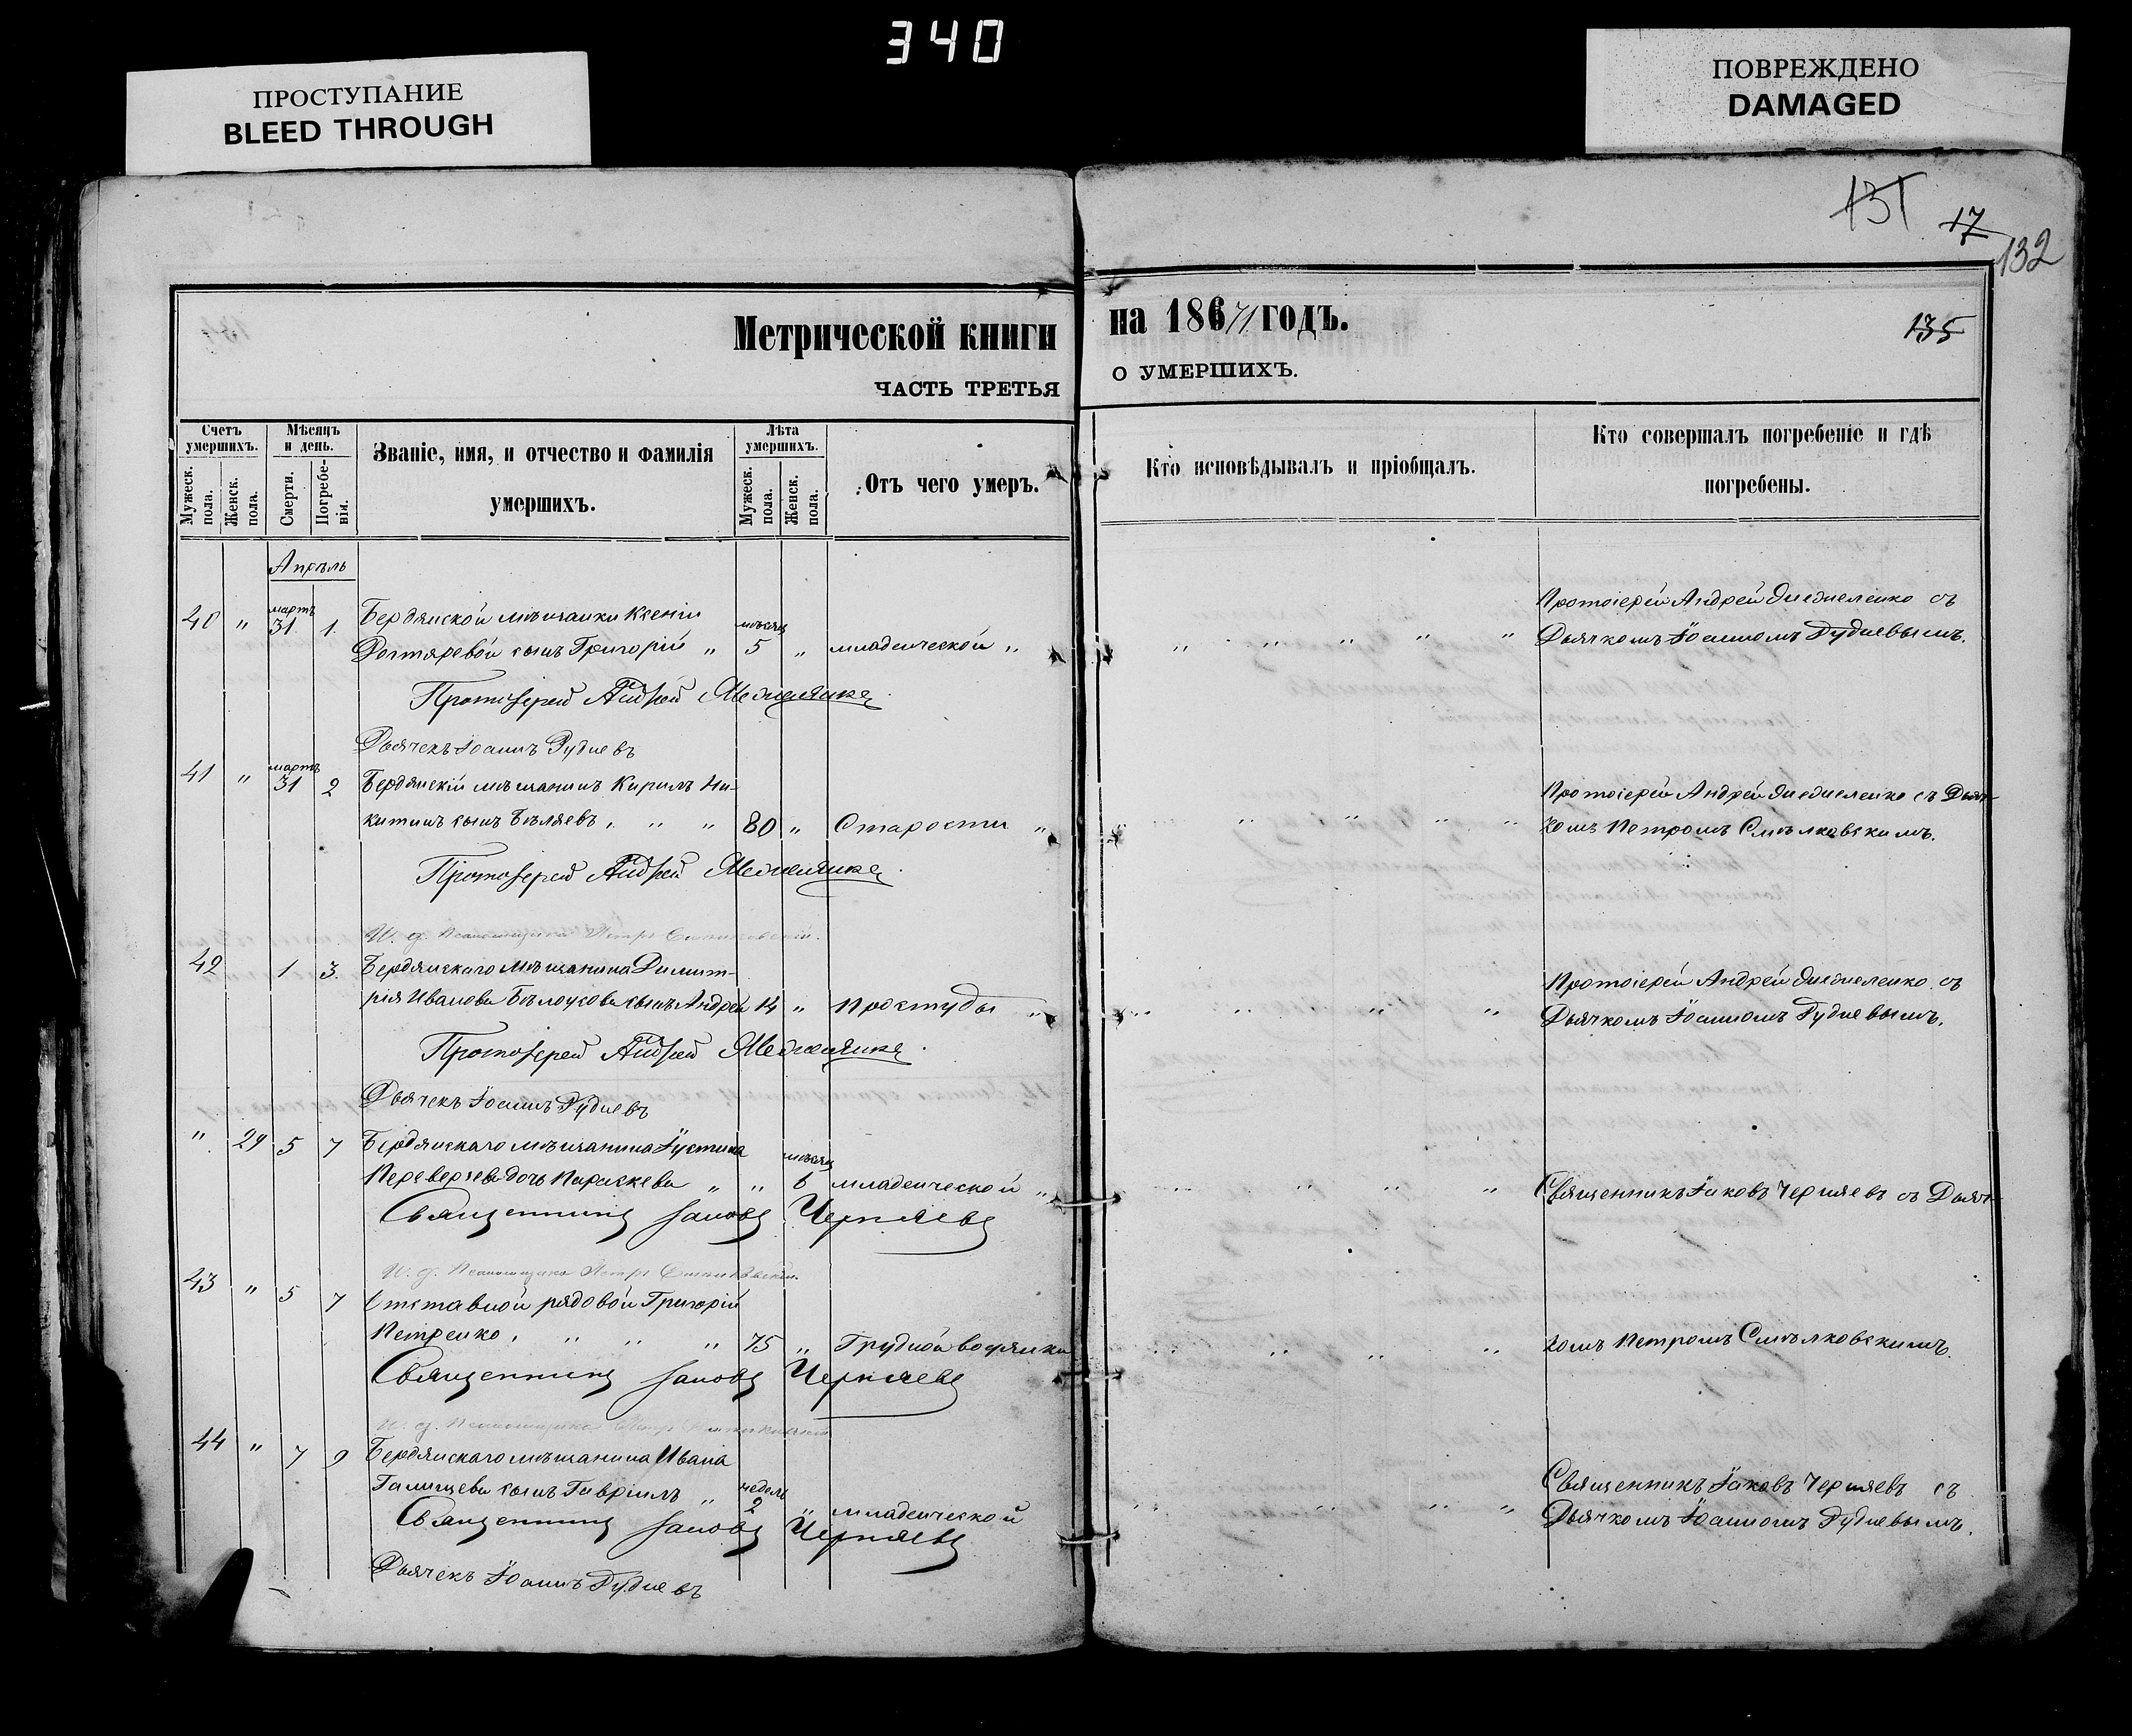 340
ПРОСТУПАНИЕ
BLEED THROUGH
ПОВРЕЖДЕНО
DAMAGED
131
17
132
135
Метрической книги на 18671 годъ.
ЧАСТЬ ТРЕТЬЯ О УМЕРШИХЪ.
Счетъ умершихъ.
Мужеск. пола.
Женск. пола.
Мѣсяцъ и день.
Смерти.
Погребенія.
Званіе, имя, и отчество и фамилія
умершихъ.
Лѣта умершихъ.
Мужеск. пола.
Женск. пола.
Отъ чего умеръ.
Кто исповѣдывалъ и пріобщалъ.
Кто совершалъ погребеніе и гдѣ
погребены.
Апрѣль
40 " мартъ 31 1. Бердянской мѣщанки Ксеніи
Дехтяревой сынъ Григорій " мѣсяц 5 " младенческой "
Протоіерей Андрей съ
Дьячкомъ Іоанномъ Гудневымъ.
Протоіерей Андрей
Дьячекъ Іоаннъ Гудневъ
41 " мартъ 31 2 Бердянскій мѣщанинъ Кирилъ Ни-
китинъ сынъ Бѣляевъ " " " 80 " Старости "
Протоіерей Андрей съ Дьяч-
комъ Петромъ Смѣлковскимъ.
Протоіерей Андрей
И. д. Псаломщика Петръ
42 1 3. Бердянскаго мѣщанина Димит-
рія Иванова Бѣлоусова сынъ Андрей 14 " простуды "
Протоіерей Андрей съ
Дьячкомъ Іоанномъ Гудневымъ.
Протоіерей Андрей
Дьячекъ Іоаннъ Гудневъ
" 29 5 7 Бердянскаго мѣщанина Іустина
дочь Параскева " " мѣсяц 6 младенческой "
Священникъ Іаковъ Черняевъ съ Дьяч-
Священникъ Іаковъ Черняевъ
И. д. Псаломщика Петръ
43 " 5 7 Отставной рядовой Григорій
Петренко. " " " 75 " Грудной водянки
комъ Петромъ Смѣлковскимъ.
Священникъ Іаковъ Черняевъ
И. д. Псаломщика Петръ
44 " 7 9 Бердянскаго мѣщанина Ивана
сынъ Гавріилъ " недѣли 2 " младенческой
Священникъ Іаковъ Черняевъ съ
Дьячкомъ Іоанномъ Гудневымъ.
Священникъ Іаковъ Черняевъ
Дьячекъ Іоаннъ Гудневъ